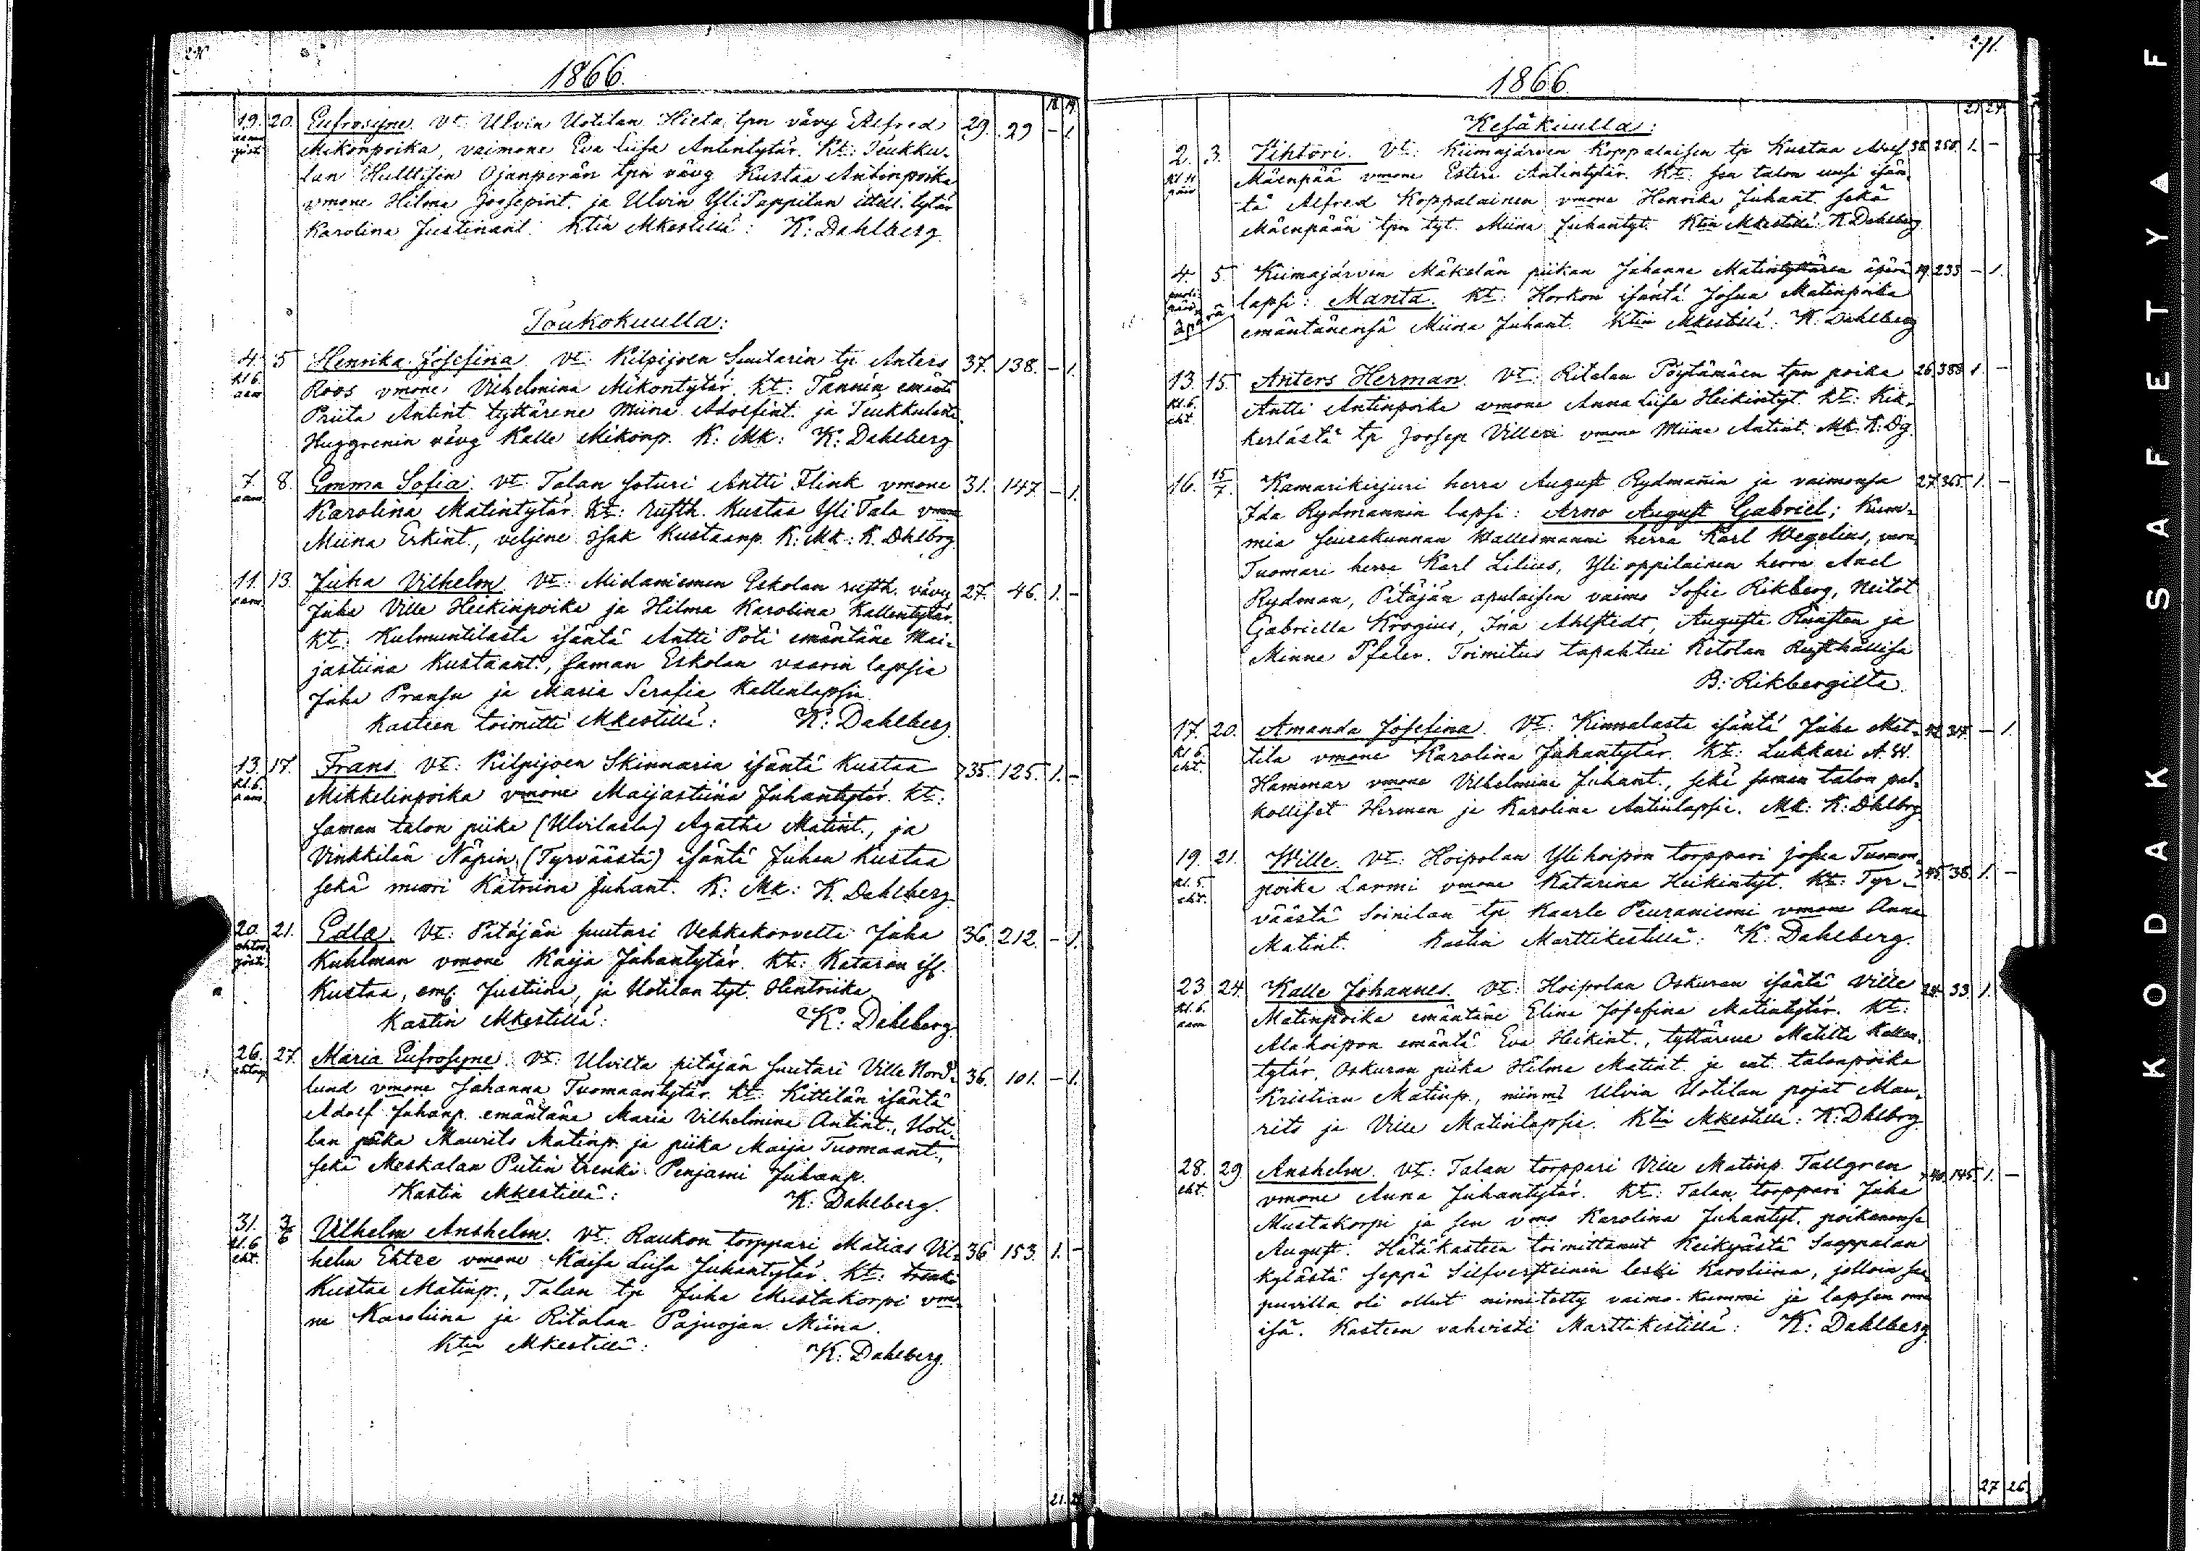 1866.
18. 19.
19. 20. Eufrosyne. Vt: Ulvin Uotilan Hieta tpn vävy Alfred 29. 29 – 1.
Mikonpoika, vaimone Eva Liisa Antintytär. Kt: Teukku-
lan Hullisin Ojanperän tpn vävy Kustaa Antinpoika
vmone Hilma Joosepint. ja Ulvin YliPappilan ittäll. tytär
Karolina Justinant. Ktin Mkestillä: K: Dahlberg.
Toukokuulla:
4. 5 Henrika Josefina. Vt: Kilpijoen Suutarin tp. Anters 37. 138. – 1.
kl 6. aam Roos vmone Vilhelmina Mikontytär. Kt: Tannin emäntä
Priita Antint. tyttärene Miina Adolfint. ja Teukkulasta
Huggrenin vävy Kalle Mikonp. K: Mk: K: Dahlberg
7. aam. 8. Emma Sofia. Vt: Talan soturi Antti Flink vmone 31. 147. – 1.
Karolina Matintytär. Kt: rusth. Kustaa YliTala vmone
Miina Erkint., veljene Isak Kustaanp. K: Mk: K. Dhlbrg.
11. aam. 13. Juha Vilhelm. Vt: Midaniemen Eskolan rusth. vävy 27. 46. 1. –
Juha Ville Heikinpoika ja Hilma Karolina Kallentytär.
Kt: Kulmuntilasta isäntä Antti Poti emäntäne Mai-
jastiina Kustaant., saman Eskolan vaarin lapsia
Juha Pransu ja Maria Serafia Kallenlapsia.
Kasteen toimitti Mkestillä: K: Dahlberg.
13. kl. 6. aam. 17. Frans. Vt: Kilpijoen Skinnarin isäntä Kustaa 35. 125. 1. –
Mikkelinpoika vmone Maijastiina Juhantytär. Kt:
saman talon piika (Ulvilasta) Agatha Matint., ja
Vinkkilän Näpin (Tyrväästä) isäntä Juhan Kustaa
sekä muori Kätriina Juhant. K: Mk: K. Dahlberg
20. 21. Edla. Vt: Pitäjän suutari Vehkakorvelta Juha 36. 212. – 1.
Kuhlman vmone Kaija Juhantytär. Kt: Kataran is.
Kustaa, em. Justiina, ja Uotilan tyt. Hentriika
Kastin Mkestillä: K: Dahlberg
26. 27. Maria Eufrosyne. Vt: Ulvilta pitäjän suutari Ville Nord- 36. 101. – 1.
lund vmone Johanna Tuomaantytär. Kt: Kittilän isäntä
Adolf Juhanp. emäntäne Maria Vilhelmina Antint., Uoti-
lan poika Maurits Matinp. ja piika Maija Tuomaant.,
sekä Meskalan Putin trenki Penjami Juhanp.
Kastin Mkestillä: K: Dahlberg.
31. kl. 6 eht. 3/6 Vilhelm Anshelm. Vt: Raukon torppari Matias Vil- 36 153. 1. –
helm Ektre vmone Kaisa Liisa Juhantytär. Kt: trenki
Kustaa Matinp., Talan tp Juha Mustakorpi vmo-
ne Karoliina ja Ritalan Pajuojan Miina.
Ktin Mkestillä: K: Dahlberg.
21.
271.
1866.
Kesäkuulla:
2. 3. Vihtori. Vt: Kiimajärven Koppalaisen tp Kustaa Adolf 38. 258. 1. –
Mäenpää vmone Esteri Antintytär. Kt: sen talon uusi isän-
tä Alfred Koppalainen vmone Henrika Juhant. sekä
Mäenpään tpn tyt. Miina Juhantyt. Ktin Mkestillä: K Dahlberg
4. 5. Kiimajärven Mäkelän piikan Johanna Matintyttären äpärä 19. 233 – 1.
äpärä lapsi: Manta. Kt: Horkon isäntä Josua Matinpoika
emäntänensä Miina Juhant. Ktin Mkestillä: K: Dahlberg
13. kl. 6. eht. 15. Anters Herman. Vt: Ritalan Pöytämäen tpn poika 26 388 1. –
Antti Antinpoika vmone Anna Liisa Heikintyt. Kt: Kik-
kerlästä tp Joosep Villen vmone Miina Antint. Mk. K: Dg.
16. 15/7. Kamarikirjuri herra August Rydmanin ja vaimonsa 27. 365. 1. –
Ida Rydmannin lapsi: Arno August Gabriel; Kum-
mia seurakunnan Wallesmanni herra Karl Wegelius, vara-
Tuomari herra Karl Lilius, Yli oppilainen herra Axel
Rydman, Pitäjän apulaisen vaimo Sofie Rikberg, Neitot
Gabriella Krogius, Ina Ahlstedt, Augusta Runsten ja
Minna Pfaler. Toimitus tapahtui Ketolan Rusthållissa
B: Rikbergilta.
17. kl. 6. eht. 20. Amanda Josefina. Vt: Kinnalasta isäntä Juha Mat- – 1.
tila vmone Karolina Juhantytär. Kt: Lukkari A. W.
Hammar vmone Vilhelmina Juhant., sekä saman talon pal-
kolliset Herman ja Karolina Antinlapsia. Mk: K: Dhlbrg
19. kl. 5. eht. 21. Wille. Vt: Hoipolan Ylihoipon torppari Josua Tuomon- 45. 38. 1. –
poika Lammi vmone Katarina Heikintyt. Kt: Tyr-
väästä Soinilan tp. Kaarle Peuraniemi vmone Anna
Matint. Kastin Marttikestillä: K: Dahlberg.
23 kl. 6. aam 24. Kalle Johannes. Vt: Hoipolan Oskuran isäntä Ville 24. 33. 1.
Matinpoika emäntäne Elina Josefina Matintytär. Kt:
Alahoipon emäntä Eva Heikint., tyttärene Matilta Kallen-
tytär, Oskuran piika Hilma Matint. ja ent. talonpoika
Kristian Matinp., niinmö Ulvin Uotilan pojat Mau-
rits ja Ville Matinlapsia. Ktin Mkestillä: K: Dhlbrg
28. eht. 29. Anshelm. Vt: Talan torppari Ville Matinp. Tallgren 40. 145. 1. –
vmone Anna Juhantytär. Kt: Talan torppari Juha
Mustakorpi ja sen vmo Karolina Juhantyt. poikanensa
August. Hätäkasteen toimittanut Keikyästä Saappalan
kylästä seppä Silfversteinin leski Karoliina, jolloin saa
puvilla oli ollut nimitetty vaimo-kummi ja lapsen oma
isä. Kasteen vahvisti Marttikestillä: K: Dahlberg
27 26.
KODAK SAFETY ▲ F